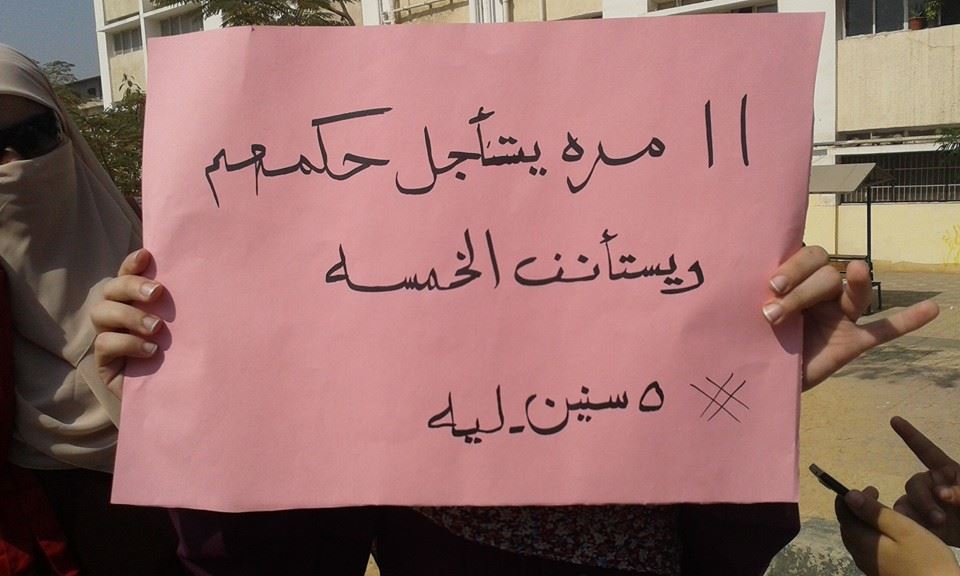 ١١ مره يستأجل حكمهم
ويستأنف الخمسه
※ ٥ سنين_ليه